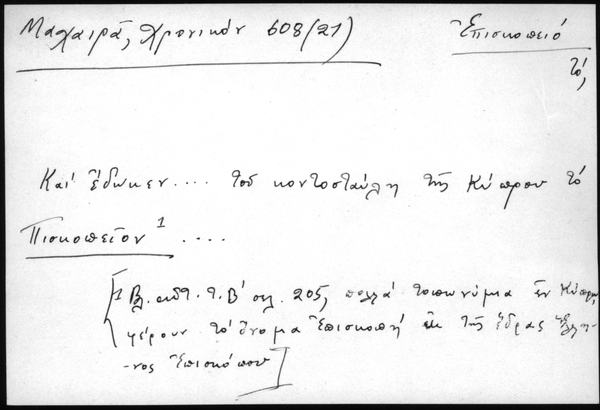 Μαχαιρᾶ, Χρονικόν 608 (21) Ἐπισκοπειό
τό,
Καί ἔδωκεν.... τοῦ κοντοσταύλη τῆς Κύπρου τό
Πισκοπεῖον¹ ....
[1 Βλ. αὐτ. τ. Β' σελ. 205, πολλά τοπωνύμια ἐν Κύπρῳ
φέρουν τό ὄνομα Ἐπισκοπή ἐκ τῆς ἕδρας Ἕλλη-
νος Ἐπισκόπου]